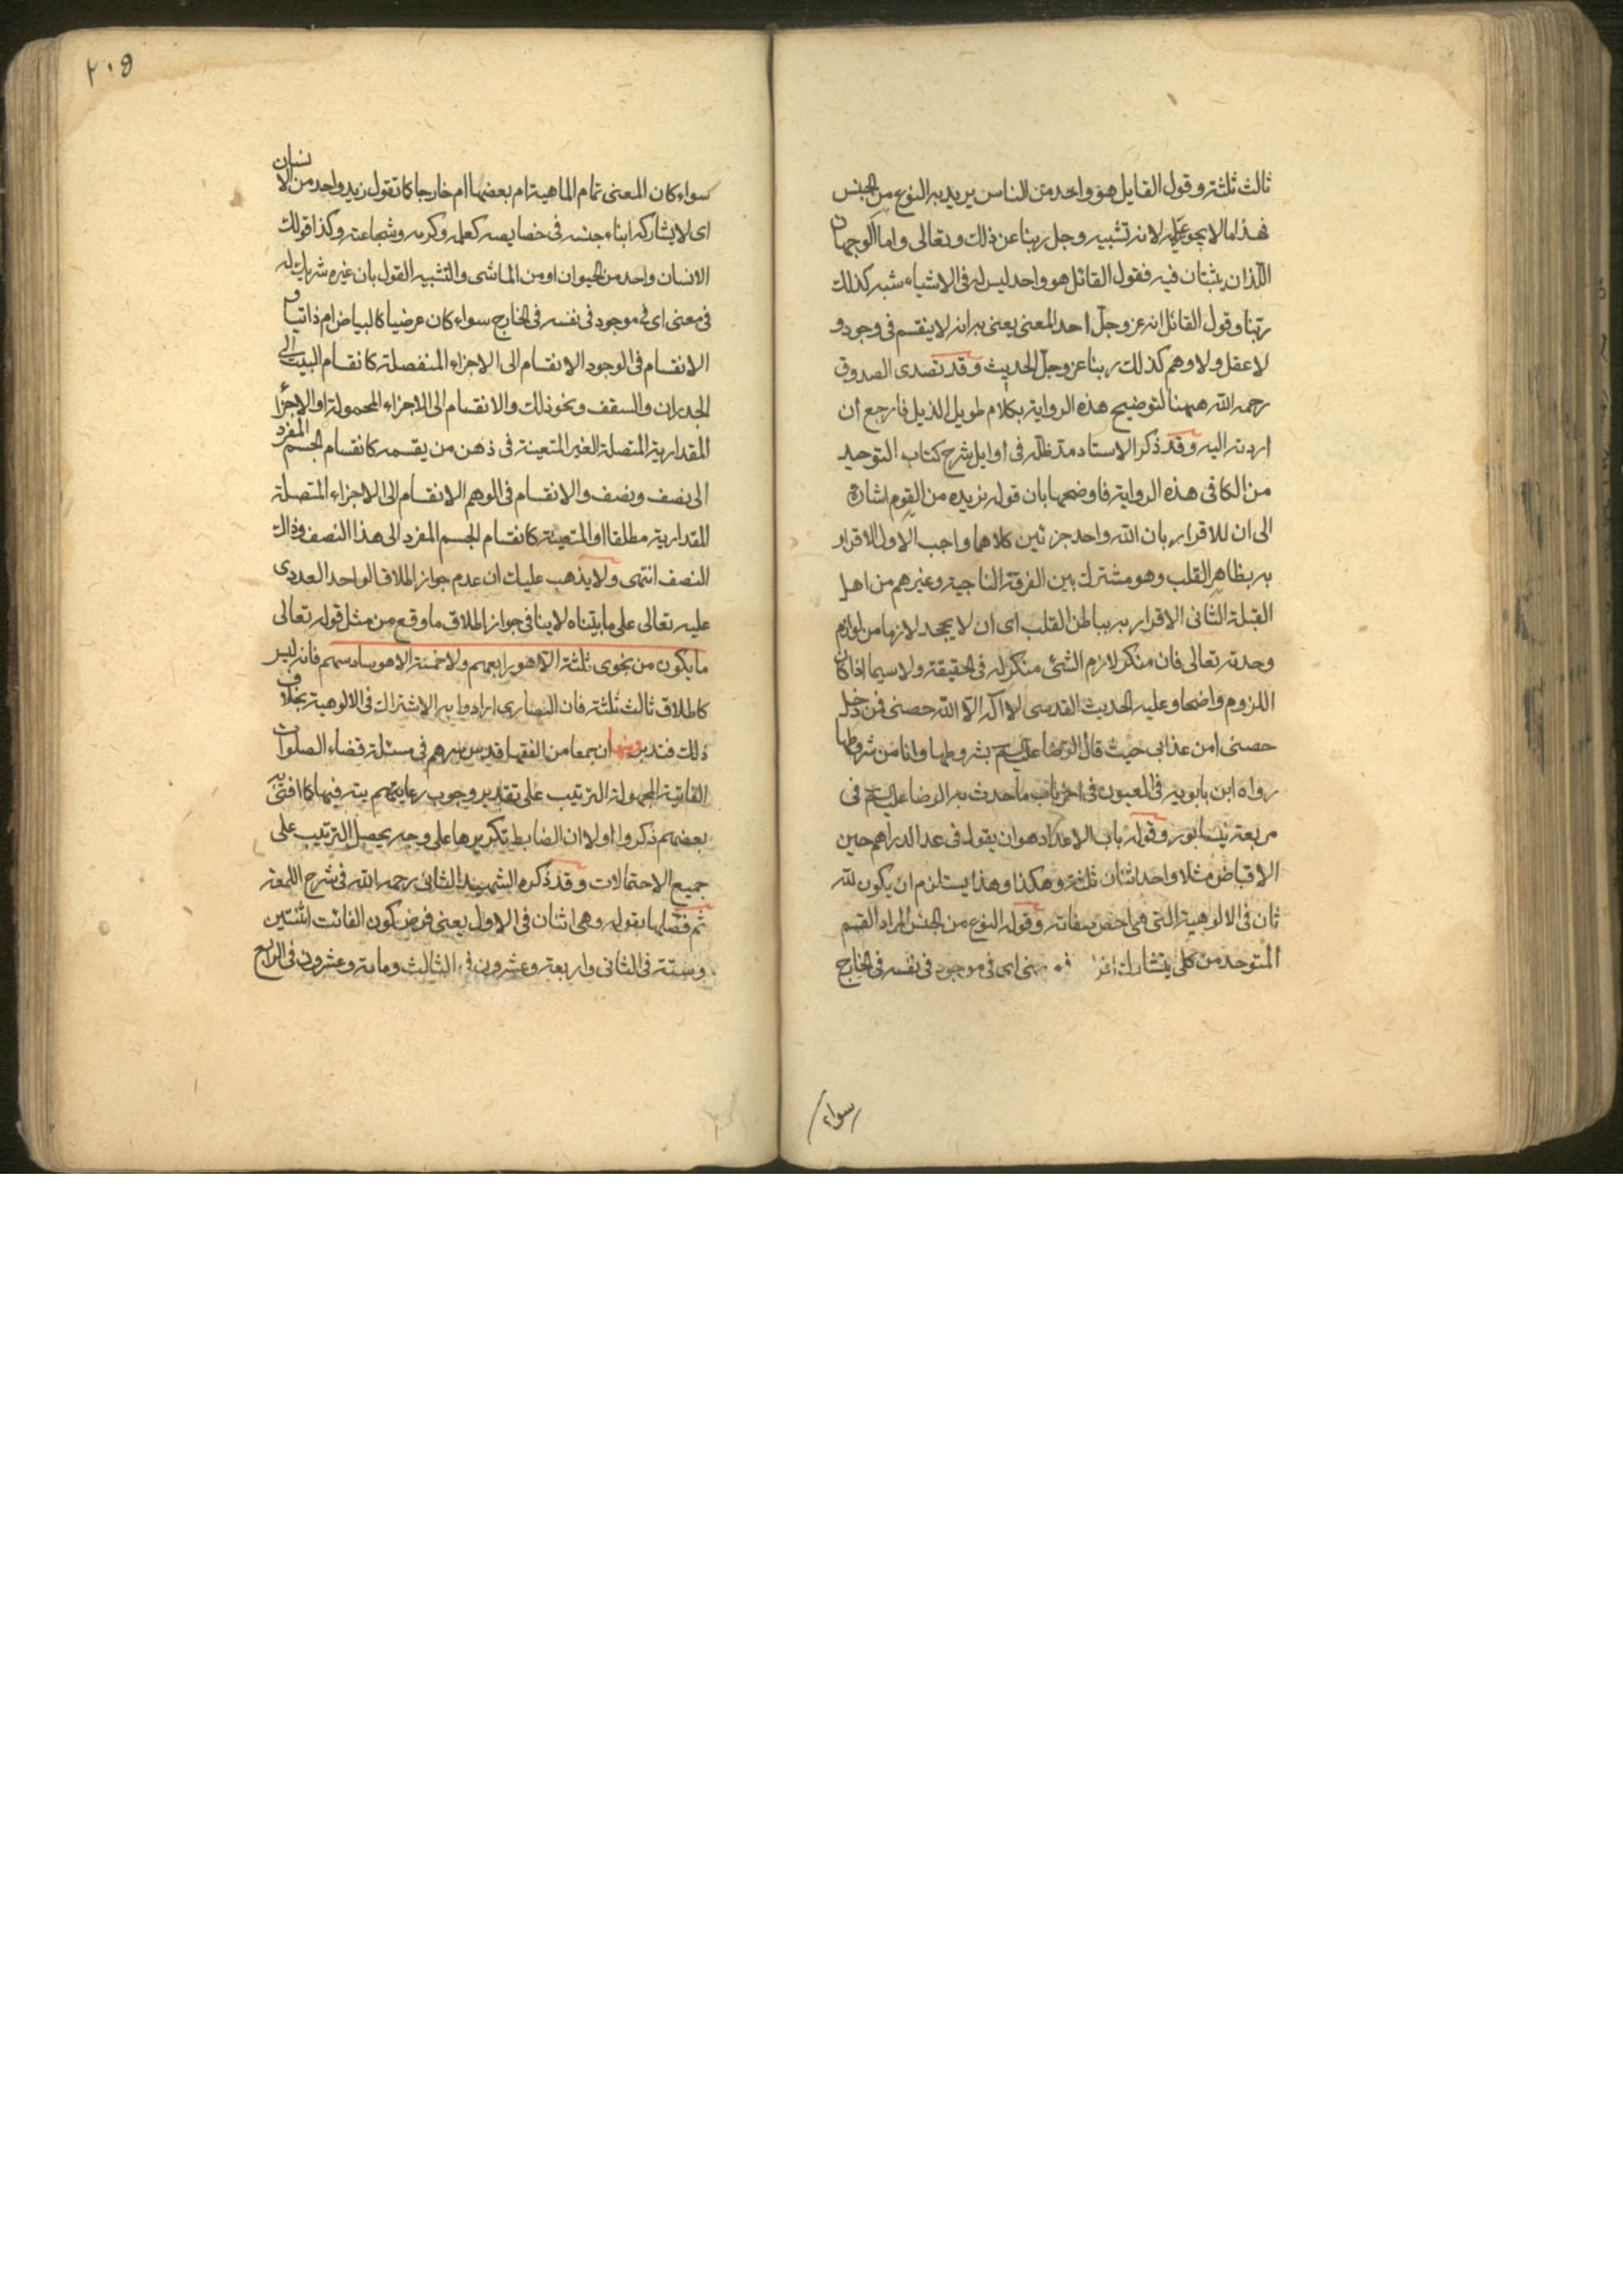 ثالث ثلثة وقول القايل هو واحد من الناس يريد به النوع من الجنس
فهذا ما لا يجوز عليه لانه تشبيه وجل ربنا عن ذلك وتعالى واما الوجهان
اللذان يثبتان فيه فقول القائل هو واحد ليس له فى الاشياء شبه كذلك
ربنا وقول القائل انه عز وجل احد المعنى يعنى به انه لا ينقسم فى وجود و
لا عقل ولا وهم كذلك ربنا عز وجل الحديث وقد تصدى الصدوق
رحمه الله ههنا لتوضيح هذه الرواية بكلام طويل الذيل فارجع ان
اردته اليه وقد ذكر الاستاد مد ظله فى اوايل شرح كتاب التوحيد
من الكافى هذه الرواية فاوضحها بان قوله نزيده من القوم اشارة
الى ان للاقرار بان الله واحد جزئين كلاهما واجب الاول الاقرار
به بظاهر القلب وهو مشترك بين الفرقة الناجية وغيرهم من اهل
القبلة الثانى الاقرار به بباطن القلب اى ان لا يجحد لازما من لوازم
وحدته تعالى فان منكر لازم الشئ منكر له فى الحقيقة ولا سيما اذا كان
اللزوم واضحا وعليه الحديث القدسى لا اله الا الله حصنى فمن دخل
حصنى امن عذابى حيث قال الرضا عليه السلم بشروطها وانا من شروطها
رواه ابن بابويه فى العيون فى اخر باب ما حدث به الرضا عليه السلم فى
مربعة نيسابور وقوله باب الاعداد هو ان يقول فى عد الدراهم حين
الاقباض مثلا واحد اثنان ثلثة وهكذا وهذا يستلزم ان يكون لله
ثان فى الالوهية التى هى اخص صفاته وقوله النوع من الجنس المراد القسم
المتوحد من كلى يتشارك افراده فى معنى اى فى موجود فى نفسه فى الخارج
سواء
٢٠٥
سواء كان المعنى تمام الماهية ام بعضها ام خارجا كما تقول زيد واحد من الانسان
اى لا يشاركه ابناء جنسه فى خصايصه كعلمه وكرمه وشجاعته وكذا قولك
الانسان واحد من الحيوان او من الماشى والتشبيه القول بان غيره شريك له
فى معنى اى فى موجود فى نفسه فى الخارج سواء كان عرضيا كالبياض ام ذاتيا و
الانقسام فى الوجود الانقسام الى الاجزاء المنفصلة كانقسام البيت الى
الجدران والسقف ونحو ذلك والانقسام الى الاجزاء المحمولة او الاجزاء
المقدارية المتصلة الغير المتعينة فى ذهن من يقسمه كانقسام الجسم المفرد
الى نصف ونصف والانقسام فى الوهم الانقسام الى الاجزاء المتصلة
المقدارية مطلقا او المتعينة كانقسام الجسم المفرد الى هذا النصف وذاك
النصف انتهى ولا يذهب عليك ان عدم جواز اطلاق الواحد العددى
عليه تعالى على ما بيناه لا ينافى جواز اطلاق ما وقع من مثل قوله تعالى
ما يكون من نجوى ثلثة الا هو رابعهم ولا خمسة الا هو سادسهم فانه ليس
كاطلاق ثالث ثلثة فان النصارى ارادوا به الاشتراك فى الالوهية بخلاف
ذلك فتدبر ومنها ان جمعا من الفقها قدس سرهم فى مسئلة قضاء الصلوات
الفائتة المجهولة الترتيب على تقدير وجوب رعايتهم يته فيها كما افتى به
بعضهم ذكروا اولا ان الضابط تكريرها على وجه يحصل الترتيب على
جميع الاحتمالات وقد ذكره الشهيد الثانى رحمه الله فى شرح اللمعة
ثم فصلها بقوله وهى اثنان فى الاول يعنى فرض كون الفائت اثنتين
وستة فى الثانى واربعة وعشرون فى الثالث ومائة وعشرون فى الرابع